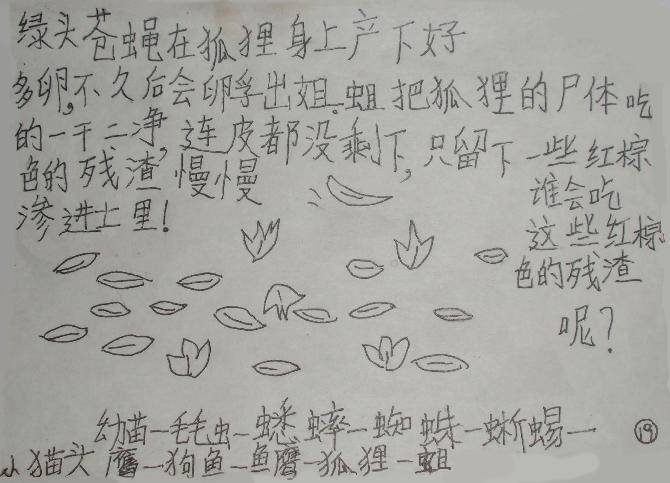 绿头苍蝇在狐狸身上产下好
多卵,不久后会卵孚出姐.蛆把狐狸的尸体吃
的一干二净,连皮都没剩下,只留下一些红棕
色的残渣,慢慢
渗进土里!
谁会吃
这些红棕
色的残渣
呢?
幼苗—毛毛虫—蟋蟀—蜘蛛—蜥蜴—
小猫头鹰—狗鱼—鱼鹰—狐狸—蛆
19